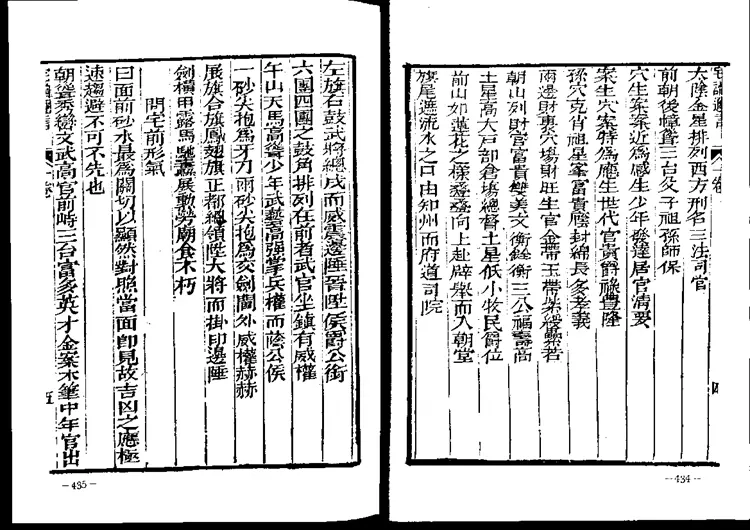 太陰金星排列西方刑名三法司官
前朝後幛聳三台父子祖孫師保
穴生案案近為感生少年發達居官清要
案生穴案特為應生世代官賞爵祿豊隆
孫穴克肖祖星峯富貴應封綿長多孝義
雨邊財裹穴場財旺生官金帶玉帶紫綬纍若
朝山列財官富貴雙美文衡銓衡三公福壽高
土星高大戸部倉塲總督土星低小牧民爵位
前山如蓮花之樣疊疊向上赴辟舉而入朝堂
旗尾遮流水之口由知州而府道司院
四
--434--
左旗右鼓武將總戎而威震邊陲晋陞侯爵公銜
六團四團之鼓角排列在前者武官坐鎮有威權
午山天馬高聳少年武藝高强掌兵權而蔭公侯
一砂尖抱為牙刀兩砂尖抱為交劍閫外威權赫赫
展旗合旗鳳翅旗正都總領陞大將而掛印邊陲
劍櫃甲露馬馳驅展動勞廟食不朽
間宅前形氣
曰面前砂水最為關切以顯然對照當面卽見故吉凶之應極
速趨避不可不先也
朝聳秀巒文武高官前峙三台富多英才金案木筆中年官出
五
--435--